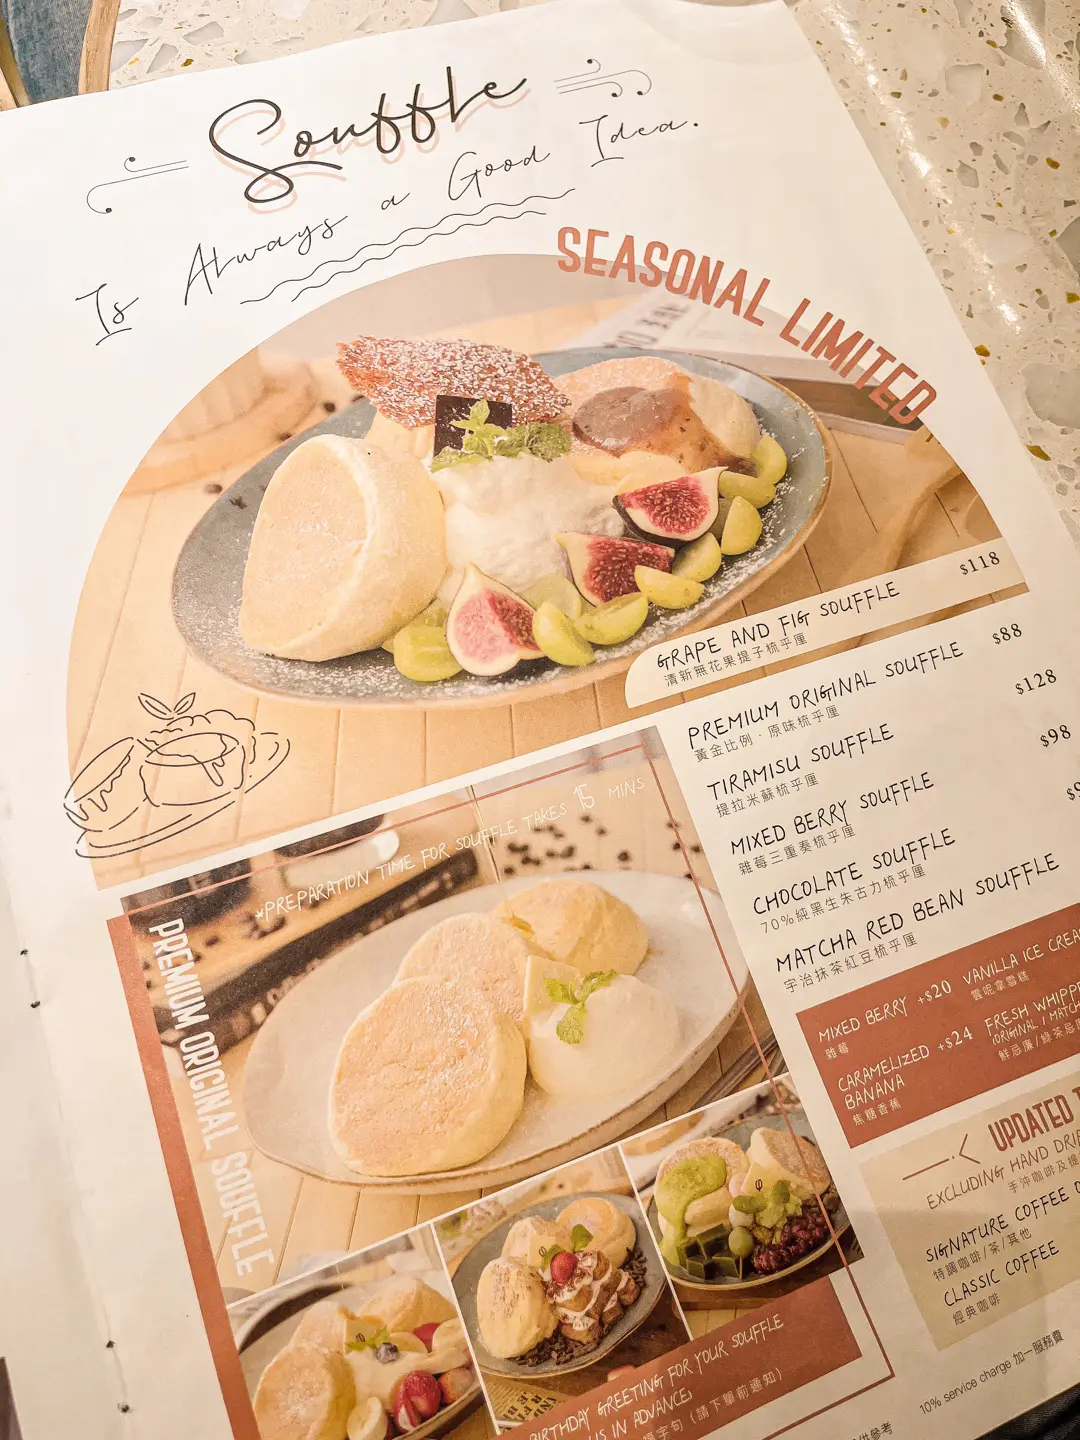 Souffle
Is Always a Good Idea.
SEASONAL LIMITED
GRAPE AND FIG SOUFFLE $118
清新無花果提子梳乎厘
PREMIUM ORIGINAL SOUFFLE $88
黃金比例·原味梳乎厘
TIRAMISU SOUFFLE $128
提拉米蘇梳乎厘
MIXED BERRY SOUFFLE $98
雜莓三重奏梳乎厘
CHOCOLATE SOUFFLE
70%純黑生朱古力梳乎厘
MATCHA RED BEAN SOUFFLE
宇治抹茶紅豆梳乎厘
MIXED BERRY +$20
雜莓
VANILLA ICE CREA
雲呢拿雪糕
CARAMELIZED BANANA +$24
焦糖香蕉
FRESH WHIPPE
(ORIGINAL / MATCH
鮮忌廉/綠茶忌
*PREPARATION TIME FOR SOUFFLE TAKES 15 MINS
PREMIUM ORIGINAL SOUFFLE
BIRTHDAY GREETING FOR YOUR SOUFFLE
US IN ADVANCE
字句（請下單前通知）
UPDATED T
EXCLUDING HAND DRI
手沖咖啡及
SIGNATURE COFFEE
特調咖啡/茶/其他
CLASSIC COFFEE
經典咖啡
10% service charge 加一服務費
供參考